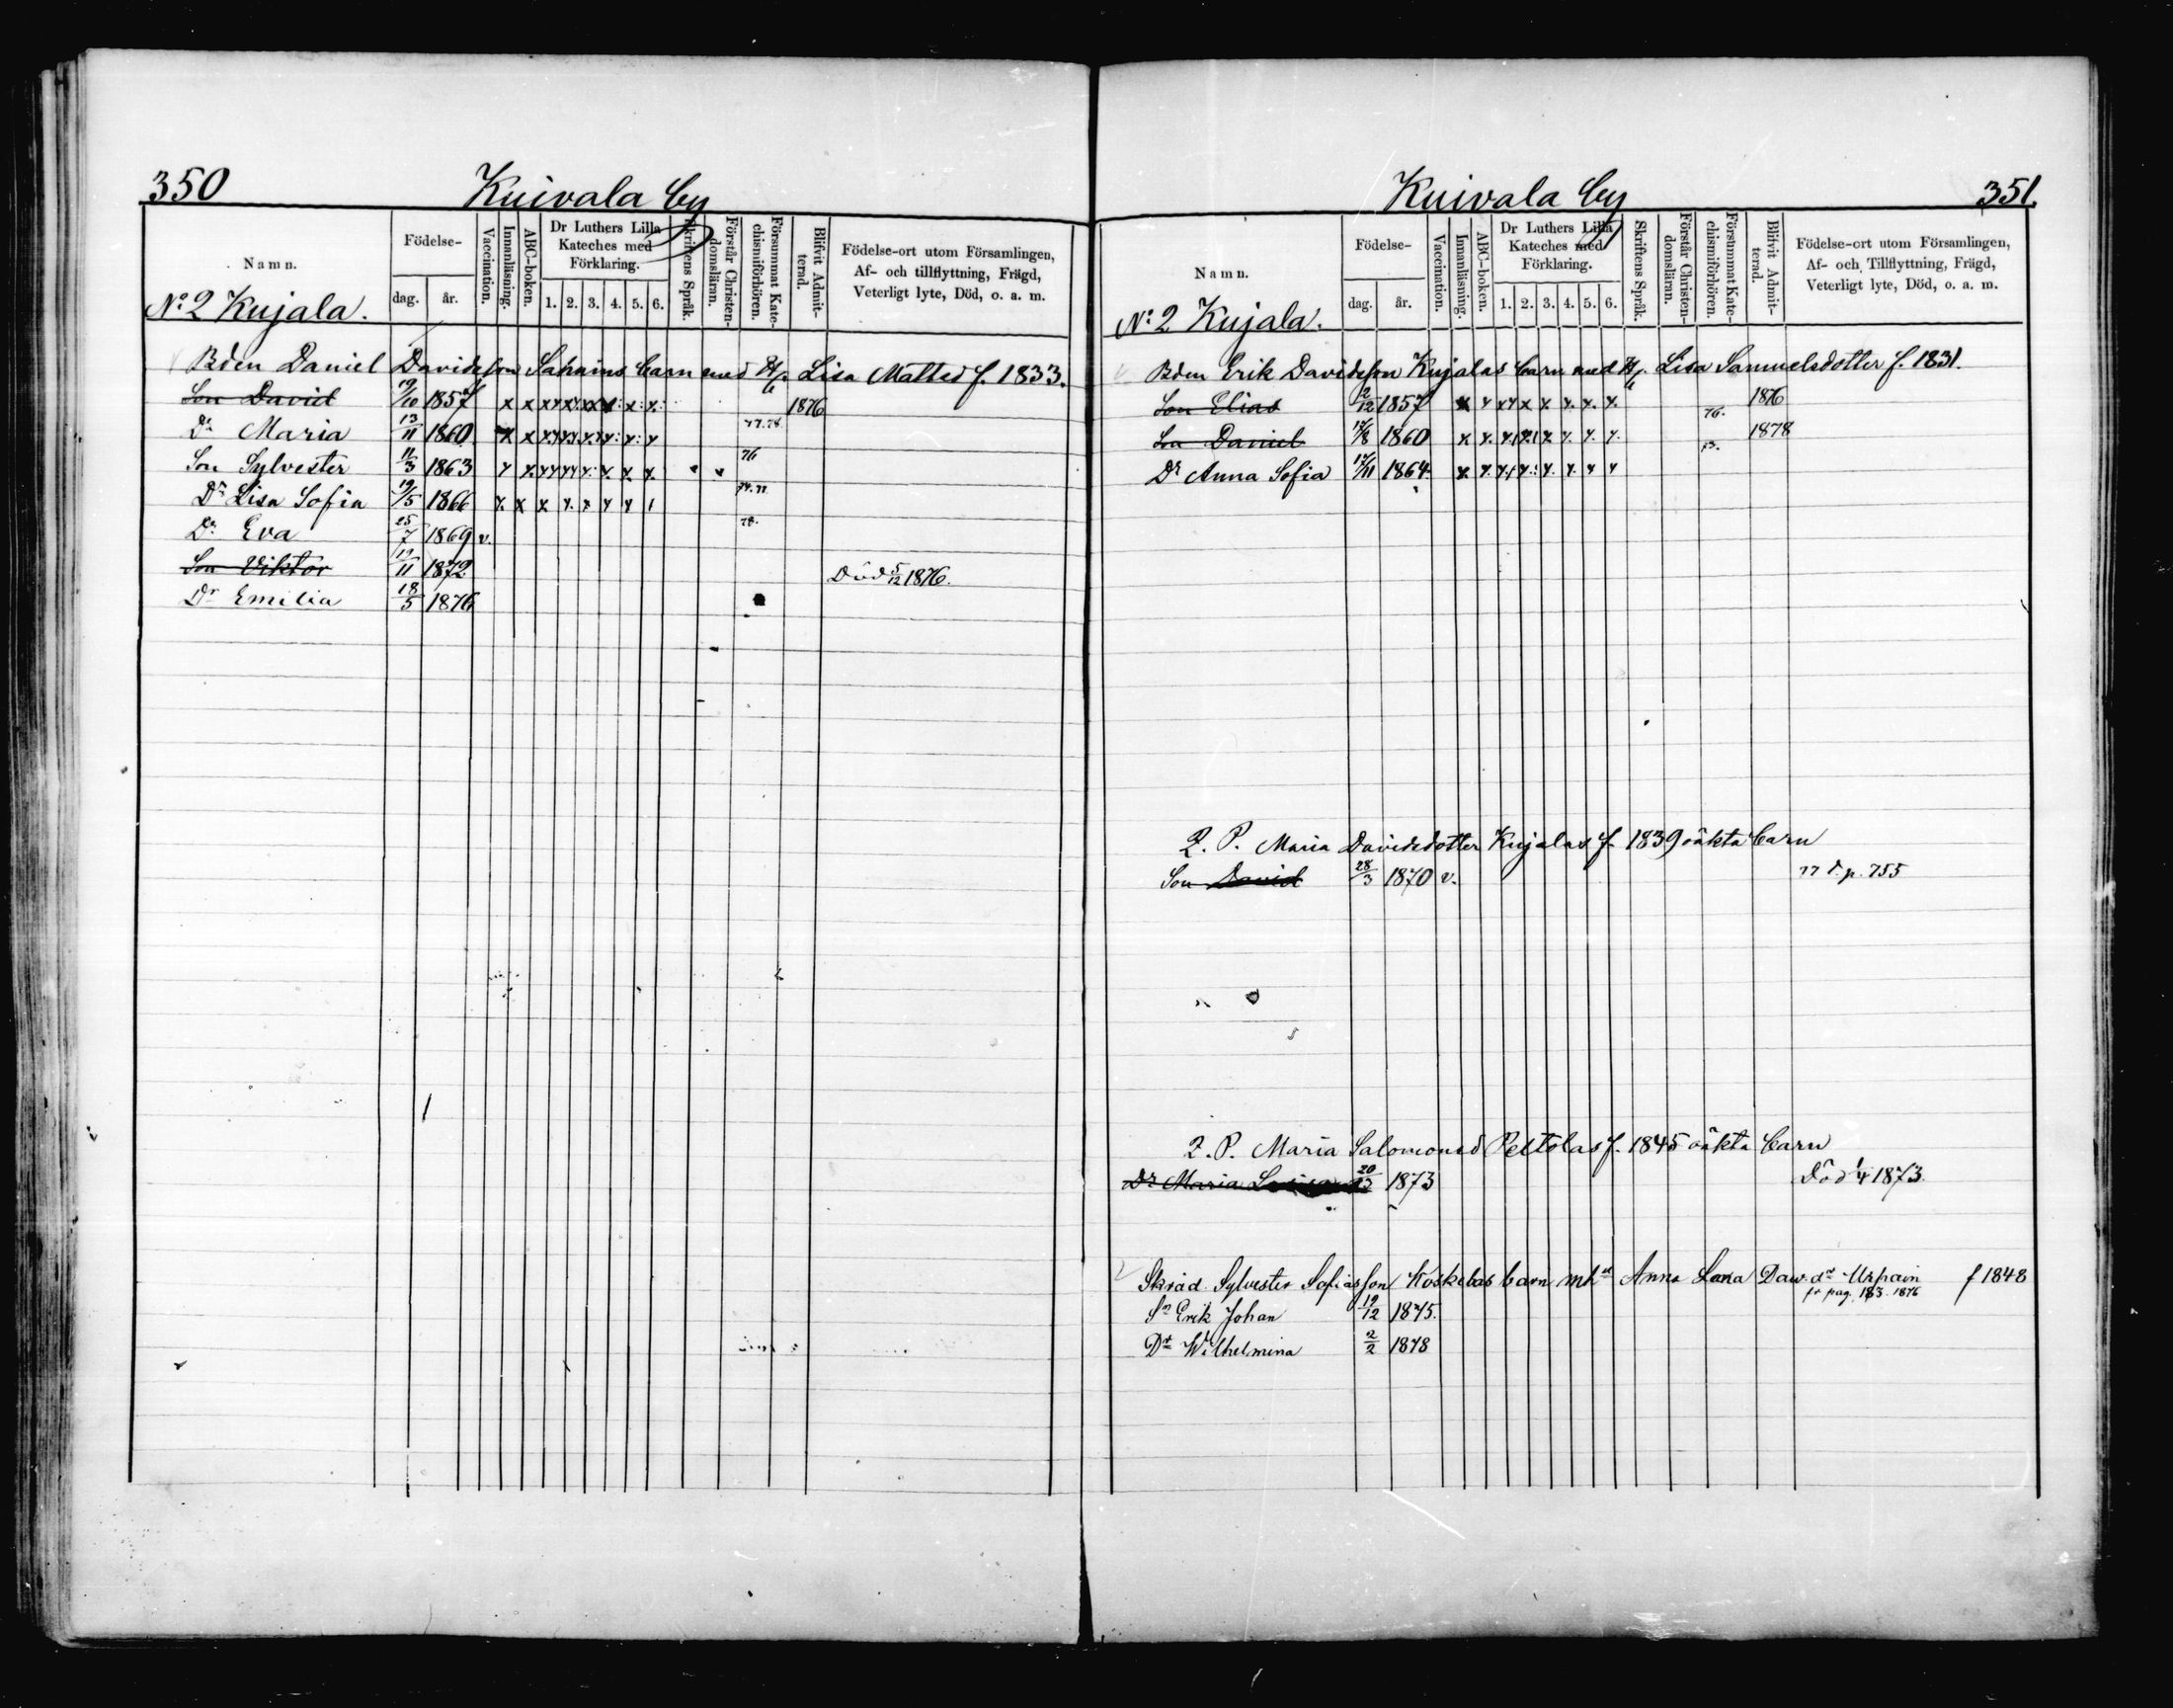 350 Kuivala by
Namn. Födelse- dag. år. Vaccination. Innanläsning. ABC-boken. Dr Luthers Lilla Kateches med Förklaring. 1. 2. 3. 4. 5. 6. Skriftens Språk. Förstår Christendomsläran. Försummat Katechismiförhören. Blifvit Admitterad. Födelse-ort utom Församlingen, Af- och tillflyttning, Frägd, Veterligt lyte, Död, o. a. m.
No 2 Kujala.
Bden Daniel Davidsson Sahains barn med H/u Lisa Mattsd f. 1833.
Son David 19/10 1857 1876
Dr Maria 13/11 1860 77.78
Son Sylvester 11/3 1863 76
Dr Lisa Sofia 19/5 1866
Dr Eva 25/7 1869 v. 78.
Son Viktor 19/11 1872 Död 5/12 1876.
Dr Emilia 18/5 1876
Kuivala by 351.
Namn. Födelse- dag. år. Vaccination. Innanläsning. ABC-boken. Dr Luthers Lilla Kateches med Förklaring. 1. 2. 3. 4. 5. 6. Skriftens Språk. Förstår Christendomsläran. Försummat Katechismiförhören. Blifvit Admitterad. Födelse-ort utom Församlingen, Af- och Tillflyttning, Frägd, Veterligt lyte, Död, o. a. m.
No 2 Kujala.
Bden Erik Davidsson Kujalas barn med H/u Lisa Samuelsdotter f. 1831.
Son Elias 2/12 1857 76. 1876
Son Daniel 1860 1878
Dr Anna Sofia 1864
Q. P. Maria Davidsdotter Kujalas f 1839 oäkta barn
Son David 28/3 1870 v. 77 d. p. 755
Q. P. Maria Salomonsd Peltolas f. 1845 oäkta barn
Dr Maria 1873 Död 1/4 1873.
Skräd. Sylvester Sofiasson Koskelas barn m hu Anna Lena Daw.dr Urpain f 1848
fr pag. 183. 1876
Sn Erik Johan 19/12 1875.
Dr Wilhelmina 2/2 1878